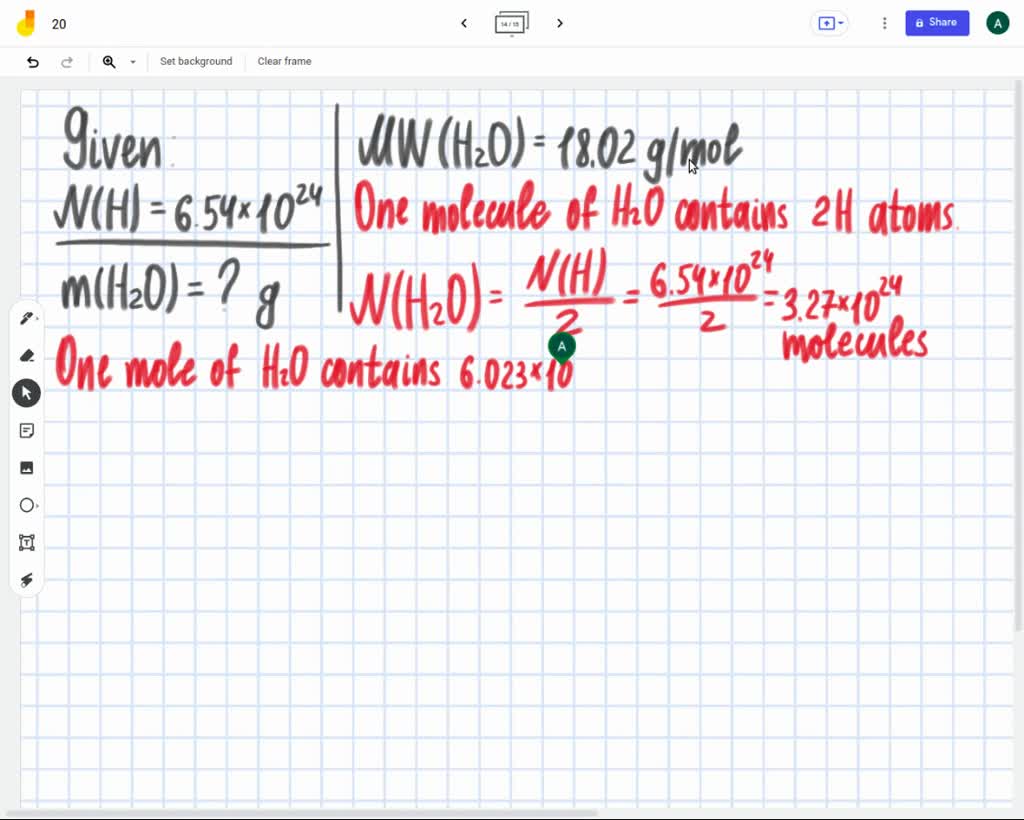 20
14 / 15
Share
A
Set background
Clear frame
Given:
N(H) = 6.54×10²⁴
m(H₂O) = ? g
MW(H₂O) = 18.02 g/mol
One molecule of H₂O contains 2H atoms.
N(H₂O) = N(H)/2 = 6.54×10²⁴/2 = 3.27×10²⁴
molecules
A
One mole of H₂O contains 6.023×10